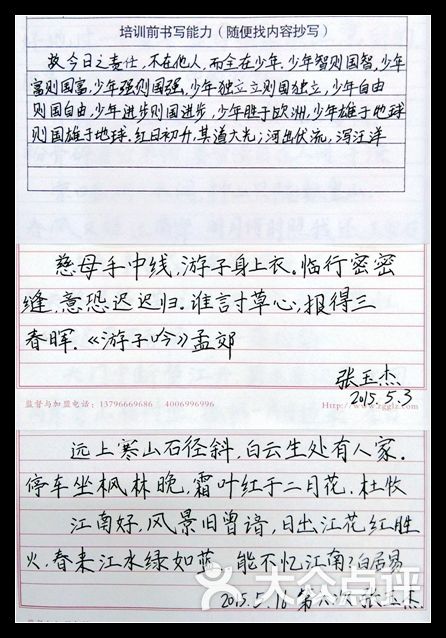 培训前书写能力（随便找内容抄写）
故今日之责任，不在他人，而全在少年.少年智则国智，少年
富则国富，少年强则国强，少年独立则国独立，少年自由
则国自由，少年进步则国进步，少年胜于欧洲，少年雄于地球
则国雄于地球.红日初升，其道大光；河出伏流，泻汪洋
慈母手中线，游子身上衣.临行密密
缝，意恐迟迟归.谁言寸草心，报得三
春晖.《游子吟》孟郊
张玉杰
2015.5.3
监督与加盟电话：13796669686 4006996996
Http://www.zgglz.com
远上寒山石径斜，白云生处有人家.
停车坐枫林晚，霜叶红于二月花，杜牧
江南好，风景旧曾谙，日出江花红胜
火，春来江水绿如蓝，能不忆江南？白居易
2015.5.16 第六次 张玉杰
大众点评